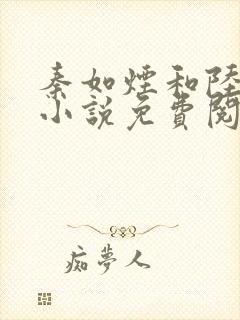 秦如煙和陸
小說免費閱
痴夢人